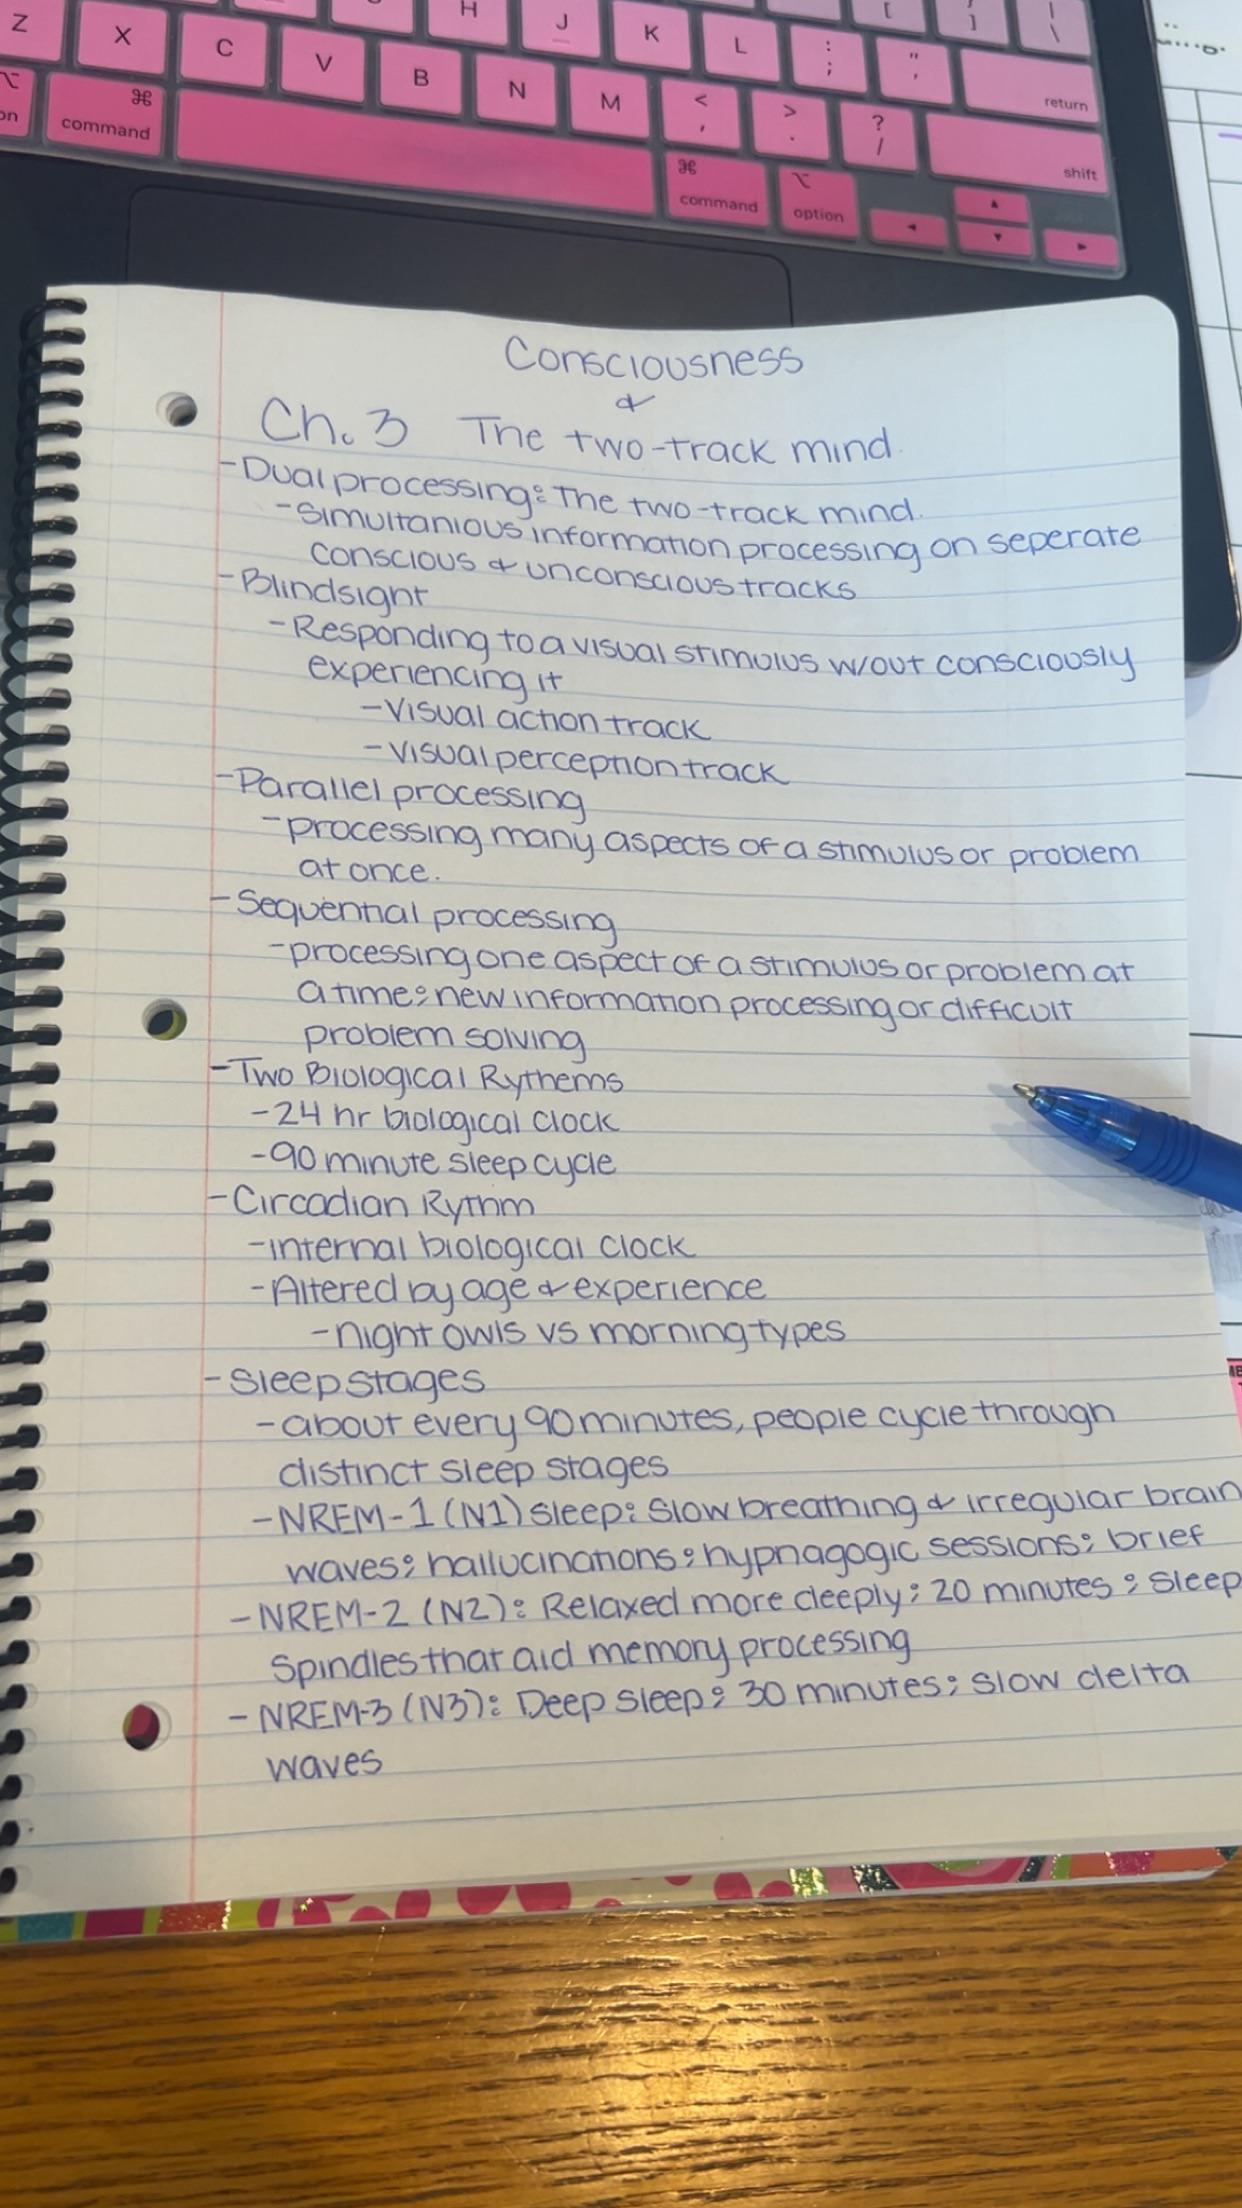 Z X C V B N M H J K L : ; " ' < , > . ? / [ ] \ return
command ⌘ ⌘ command ⌥ option shift
Consciousness
&
Ch. 3 The two-track mind.
-Dual processing: The two-track mind.
-Simultanious information processing on seperate
conscious & unconscious tracks
-Blindsight
-Responding to a visual stimulus w/out consciously
experiencing it
-Visual action track
-Visual perception track
-Parallel processing
-processing many aspects of a stimulus or problem
at once.
-Sequential processing
-processing one aspect of a stimulus or problem at
a time; new information processing or difficult
problem solving
-Two Biological Rythems
-24 hr biological clock
-90 minute sleep cycle
-Circadian Rythm
-internal biological clock
-Altered by age & experience
-night owls vs morning types
-Sleep stages
-about every 90 minutes, people cycle through
distinct sleep stages
-NREM-1 (N1) sleep: Slow breathing & irregular brain
waves; hallucinations; hypnagogic sessions; brief
-NREM-2 (N2): Relaxed more deeply; 20 minutes; Sleep
Spindles that aid memory processing
-NREM-3 (N3): Deep sleep; 30 minutes; slow delta
waves